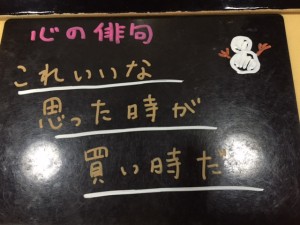 心の俳句
これいいな
思った時が
買い時だ